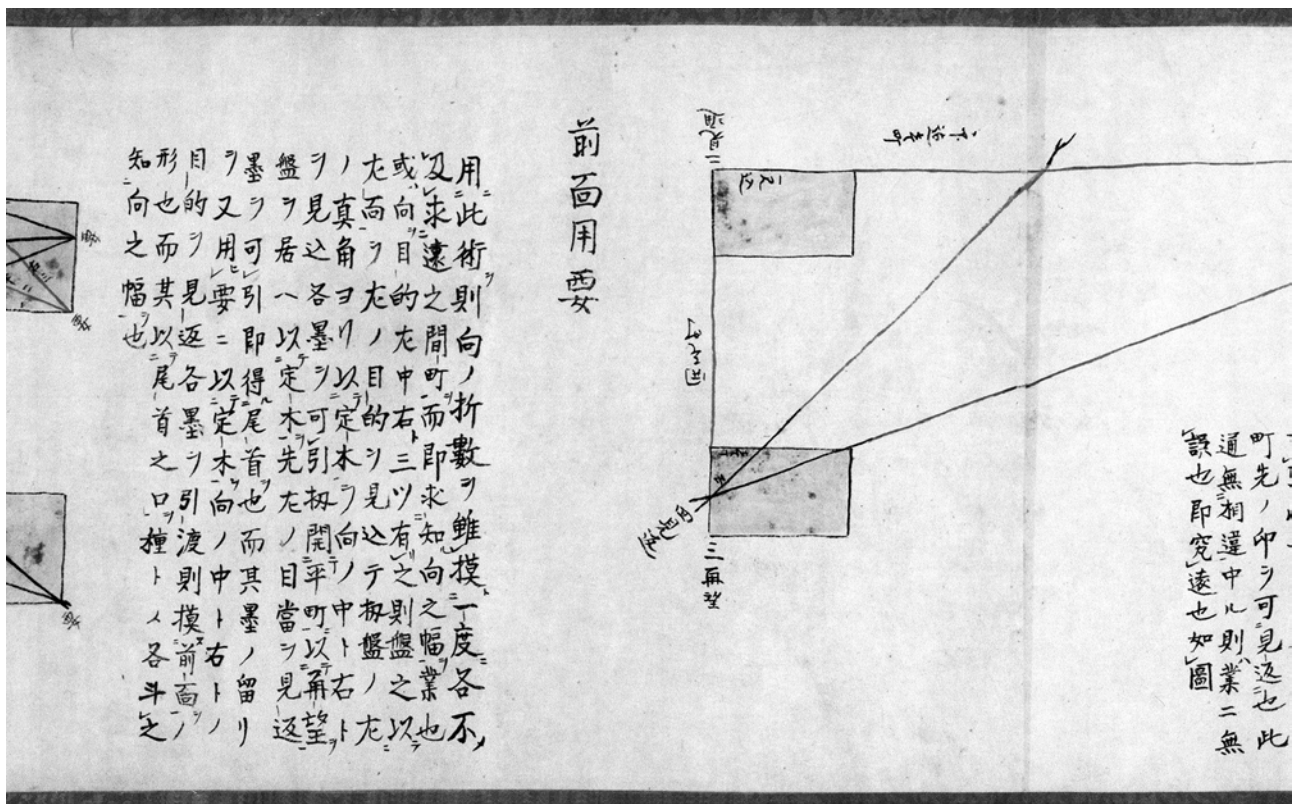 町先ノ印ヲ可見返也此
通無相違中ル則業ニ無
誤也即究遠也如圖
二見通
開平町
三再
前面用要
用此術則向ノ折數ヲ雖摸一度各不
及求遠之間町而即求知向之幅業也
或向目的左中右ト三ツ有之則盤之以
左面ヲ左ノ目的ヲ見込テ扨盤ノ左
ノ真角ヨリ以定木ヲ向ノ中ト右ト
ヲ見込各墨ヲ可引扨開平町以テ再望
盤ヲ居ヘ以定木先左ノ目當ヲ見返
墨ヲ可引即得尾首也而其墨ノ留リ
ヲ又用要ニ以定木向ノ中ト右トノ
目的ヲ見返各墨ヲ引渡則摸前面ノ
形也而其以尾首之口種トメ各斗之
知向之幅也
要
要
要